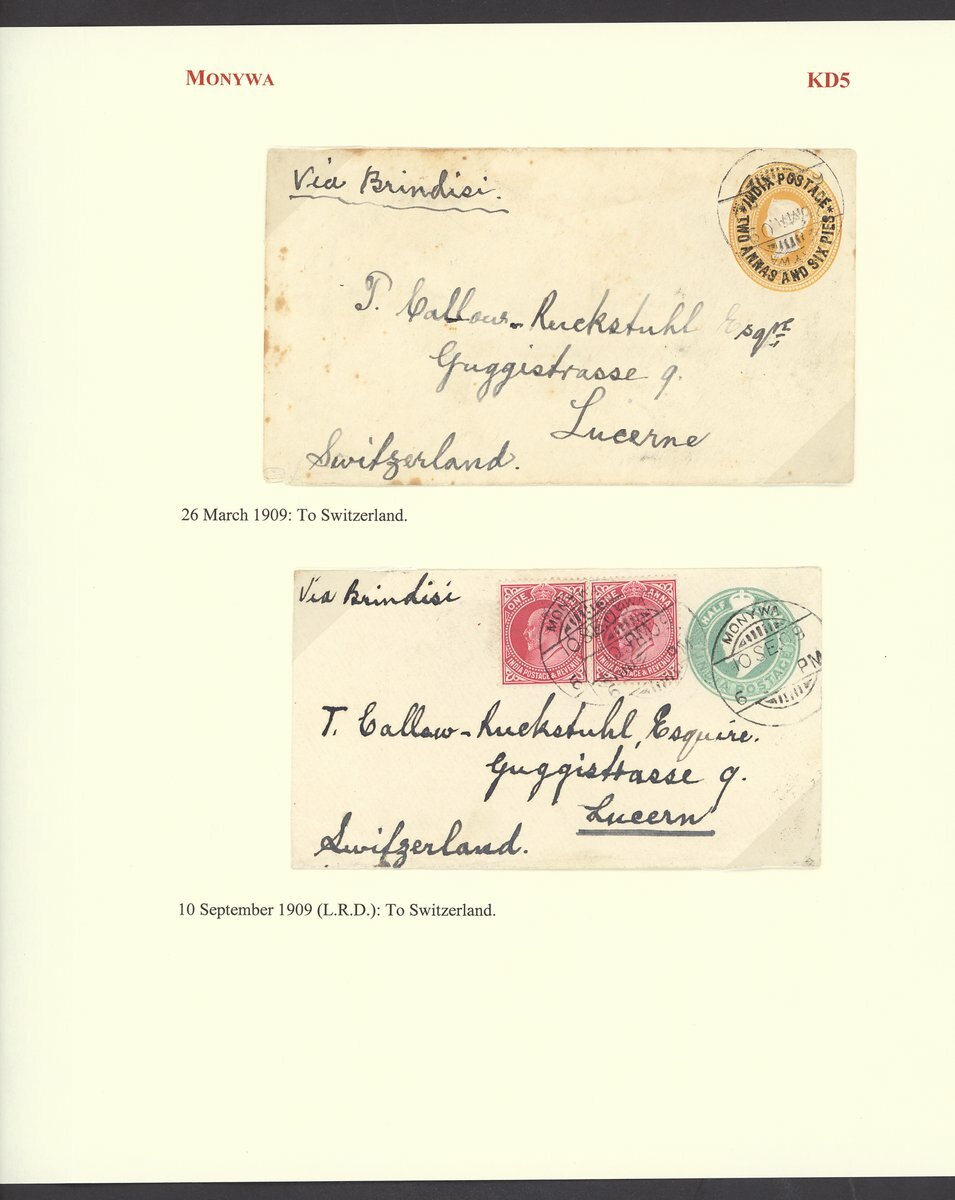 MONYWA
KD5
Via Brindisi.
INDIA POSTAGE
TWO ANNAS AND SIX PIES
T. Callow-Ruckstuhl Esqre
Guggistrasse 9.
Lucerne
Switzerland.
26 March 1909: To Switzerland.
Via Brindisi
ONE ANNA
INDIA POSTAGE & REVENUE
ONE ANNA
INDIA POSTAGE & REVENUE
HALF
INDIA POSTAGE
MONYWA
10 SE
6 PM
T. Callow-Ruckstuhl, Esquire.
Guggistrasse 9.
Lucern
Switzerland.
10 September 1909 (L.R.D.): To Switzerland.